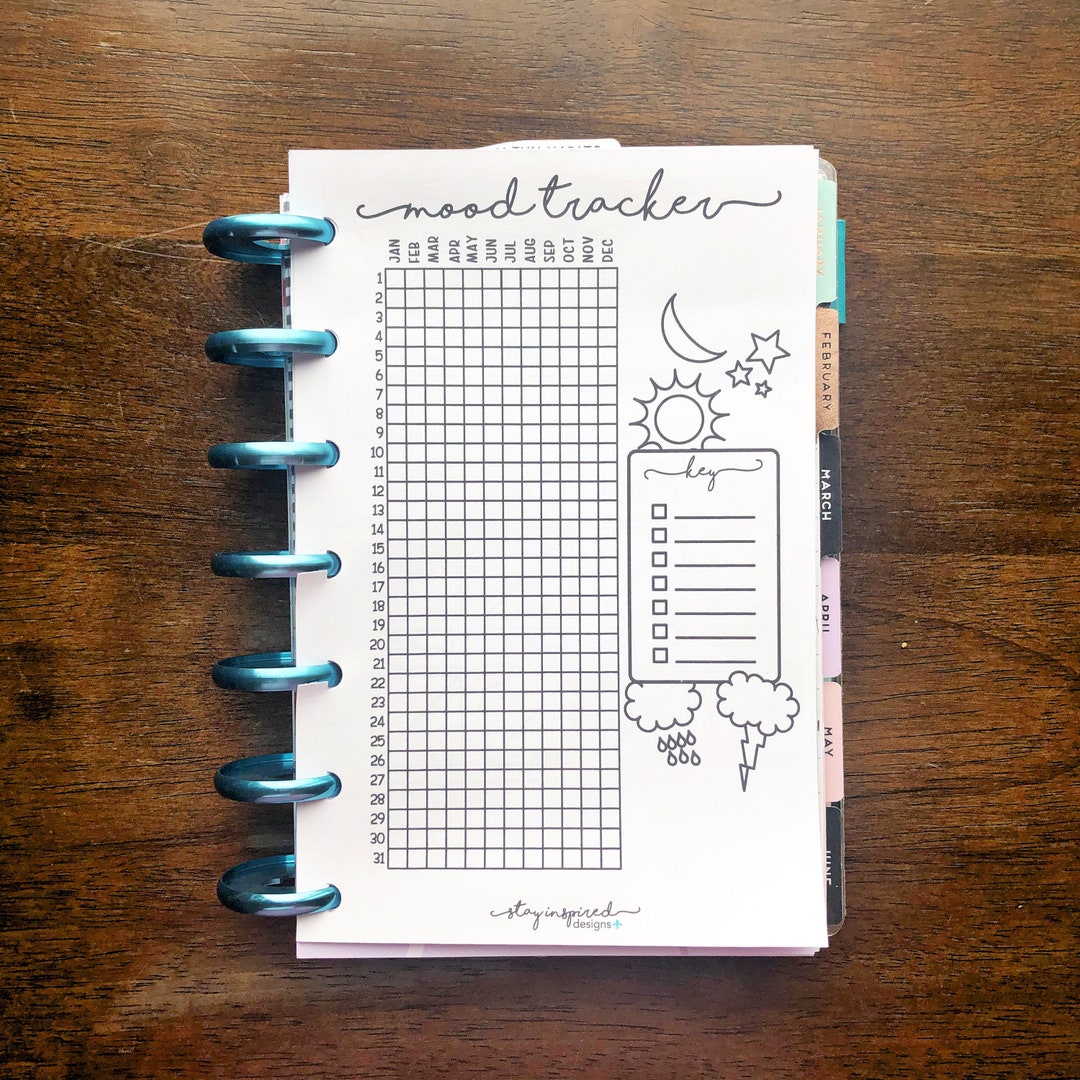 mood tracker
JAN FEB MAR APR MAY JUN JUL AUG SEP OCT NOV DEC
1
2
3
4
5
6
7
8
9
10
11
12
13
14
15
16
17
18
19
20
21
22
23
24
25
26
27
28
29
30
31
key
stay inspired
designs+
FEBRUARY
MARCH
APRIL
MAY
JUNE